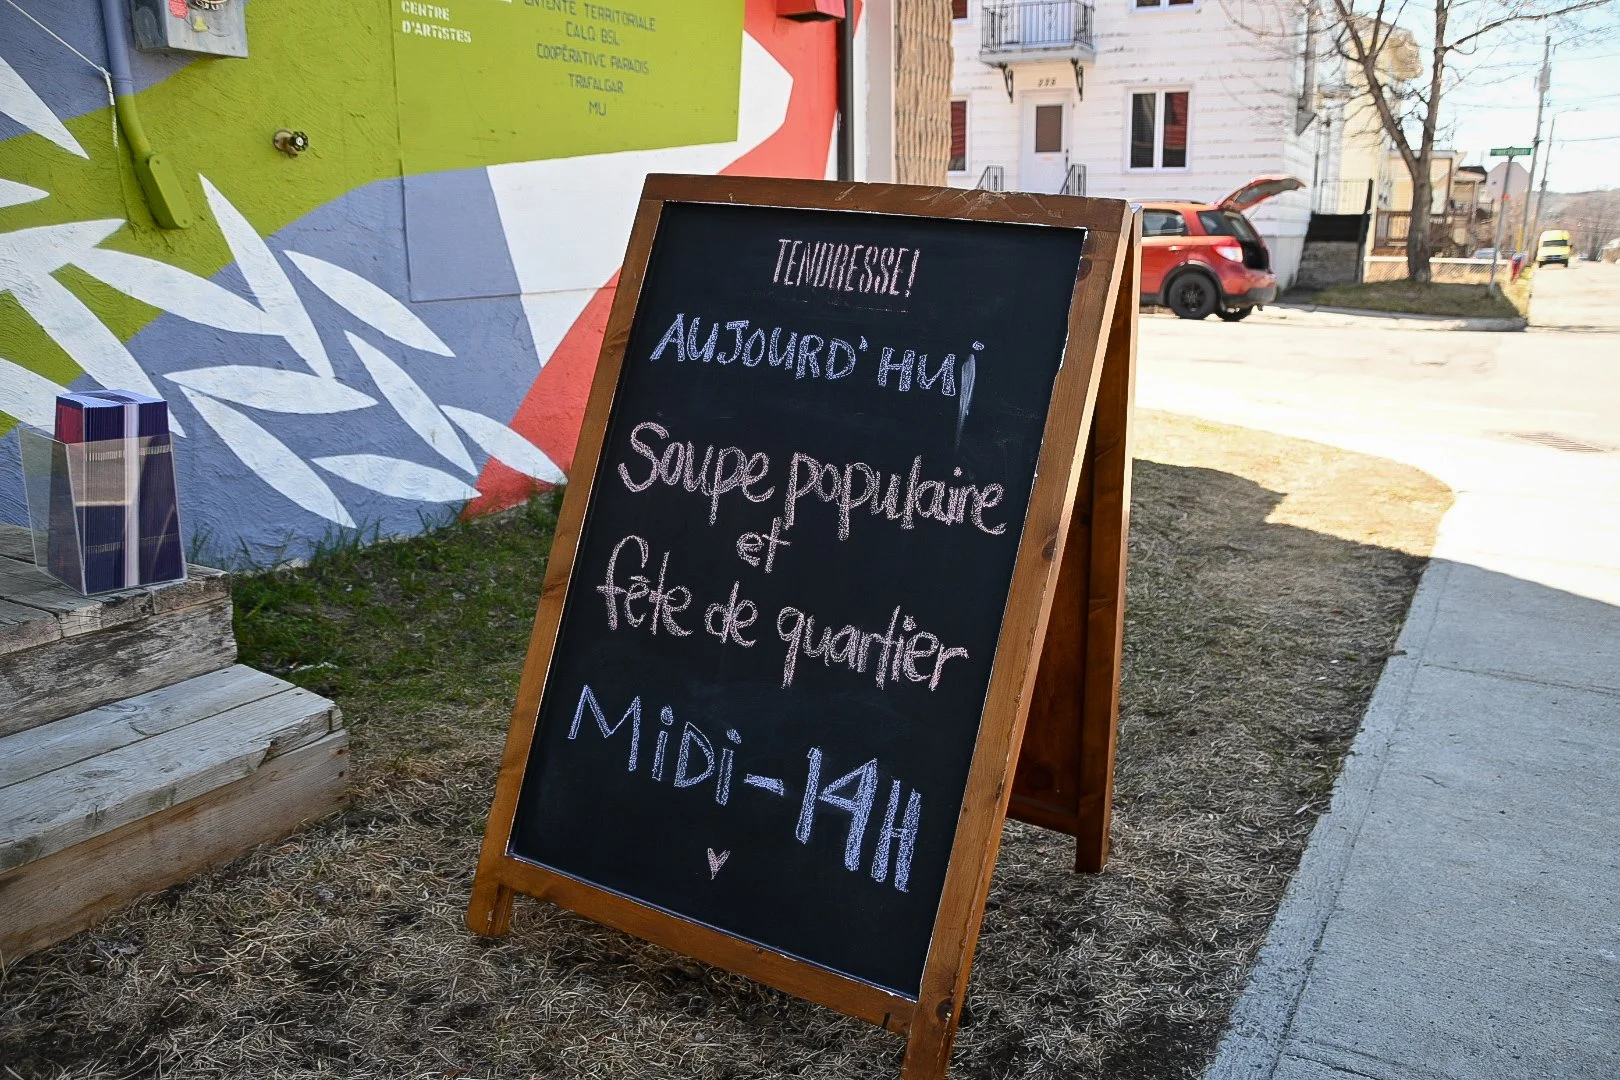 CENTRE
D'ARTISTES
ENTENTE TERRITORIALE
CALQ BSL
COOPÉRATIVE PARADIS
TRAFALGAR
MU
TENDRESSE!
AUJOURD'HUi
Soupe populaire
et
fête de quartier
MiDi - 14H